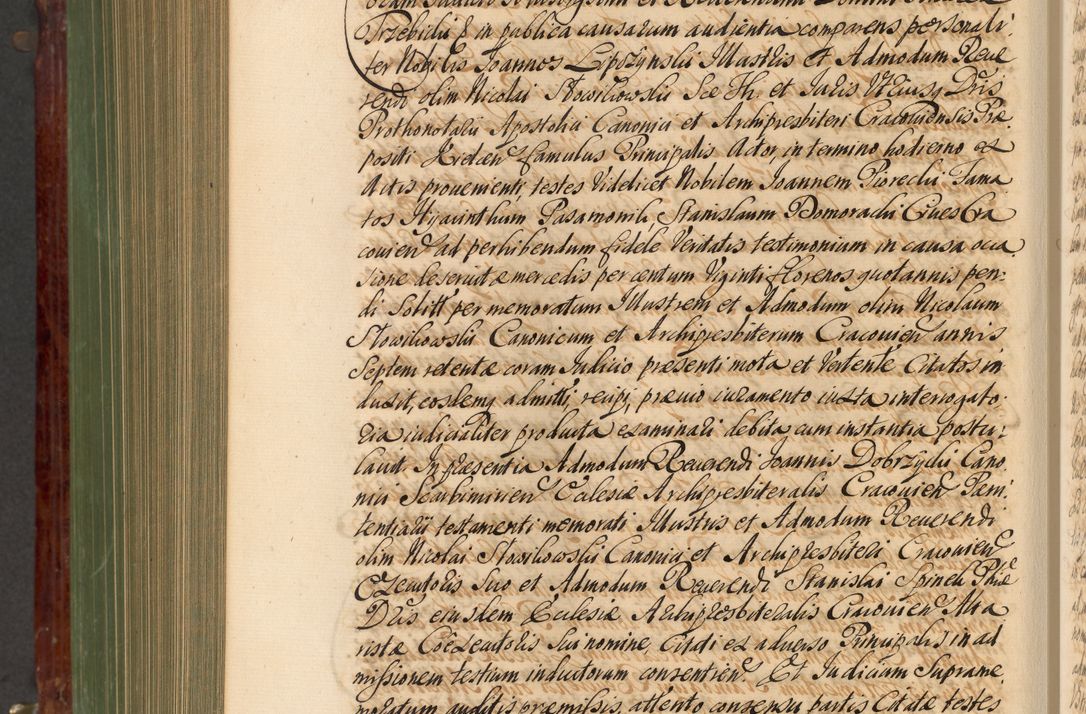 Trzebicki & in publica causarum audientia comparens personali-
ter Nobilis Joannes Lipszynski Illustris et Admodum Reue
rendi olim Nicolai Słowikowski Sce Th. et Juris Vtriusq Dris
Prothonotarii Apostolici Canonici et Archipresbiteri Cracouiensis Præ
positi Kielcen famulus Principalis Actor, in termino hodierno ex
Actis proueniente, testes Videlicet Nobilem Joannem Piorecki Fama
tos Hyacinthum Pasamonik Stanislaum Domoracki Ciues Cra
couien ad perhibendum fidele Veritatis testimonium in causa occa
sione deseruitæ mercedis per centum Viginti florenos quotannis pen-
di Solitæ per memoratum Illustrem et Admodum olim Nicolaum
Słowikowski Canonicum et Archipresbiterum Cracouien annis
Septem retentæ coram Judicio præsenti mota et Vertente Citatos in
duxit, eosdemq admitti, recipi, præuio iuramento iuxta interrogato-
ria iudicialiter producta examinari debita cum instantia postu-
lauit. In præsentia Admodum Reuerendi Joannis Dobrzycki Cano
nici Scarbimirien Ecclesiæ Archipresbiteralis Cracouien Pæni-
tentiarii testamenti memorati Illustris et Admodum Reuerendi
olim Nicolai Słowikowski Canonici et Archipresbiteri Cracouien
Executoris suo et Admodum Reuerendi Stanislai Spinek Phiæ
Dris eiusdem Ecclesiæ Archipresbiteralis Cracouien Alta
ristæ Coexecutoris sui nomine, Citati ex aduerso Principalis in ad
missionem testium inductorum consentien. Et Judicium Supræme,
moratum auditis præmissis, attento consensu partis Citatæ testes